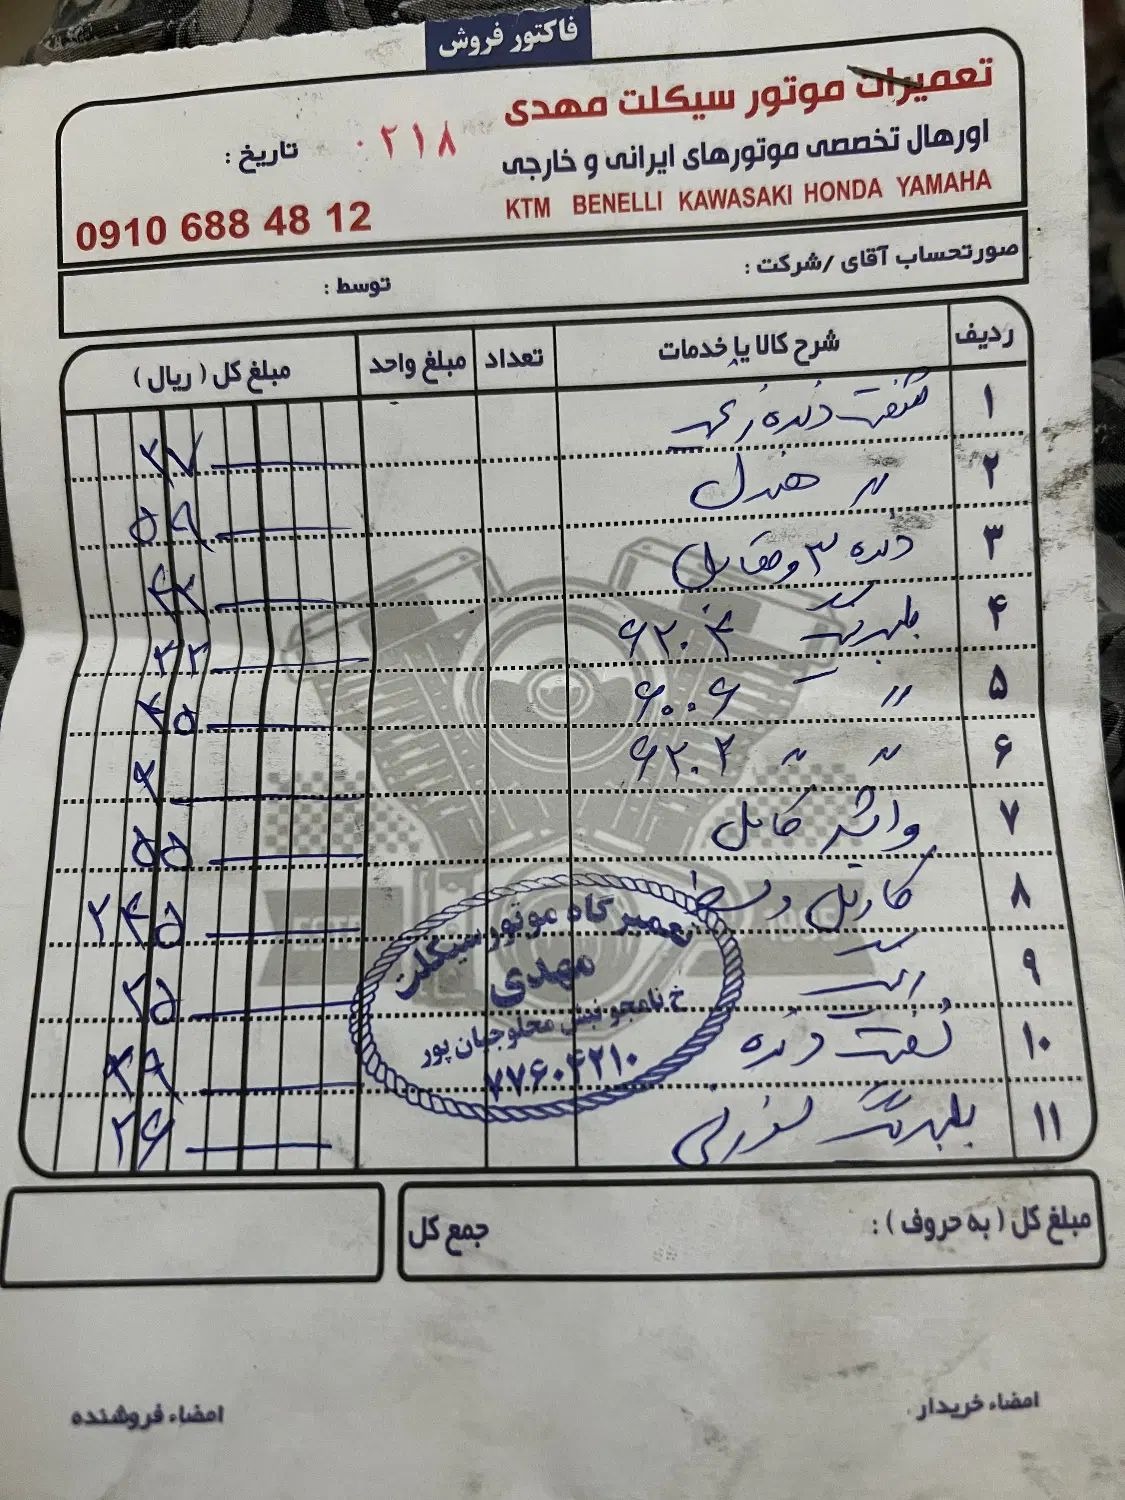 فاکتور فروش
تعمیرات موتور سیکلت مهدی
اورهال تخصصی موتورهای ایرانی و خارجی
KTM BENELLI KAWASAKI HONDA YAMAHA
۰۲۱۸
تاریخ :
0910 688 48 12
صورتحساب آقای /شرکت :
توسط :
ردیف شرح کالا یا خدمات تعداد مبلغ واحد مبلغ کل ( ریال )
۱ دنده ۲۷
۲ 〃 هندل ۵۹
۳ دنده ۳ و مقابل
۴ بلبرینگ ۶۲۰۴
۵ 〃 ۶۰۰۶ ۴۵
۶ 〃 〃 ۶۲۰۲
۷ واشر کامل ۵۵
۸ کارتل وسط ۲۴۵
۹ ۲۵
۱۰ دنده ۴۹
۱۱ بلبرینگ سوزنی ۲۶
تعمیرگاه موتور سیکلت
مهدی
خ نامجو نبش
۷۷۶۰۴۲۱۰
مبلغ کل ( به حروف ) :
جمع کل
امضاء خریدار
امضاء فروشنده